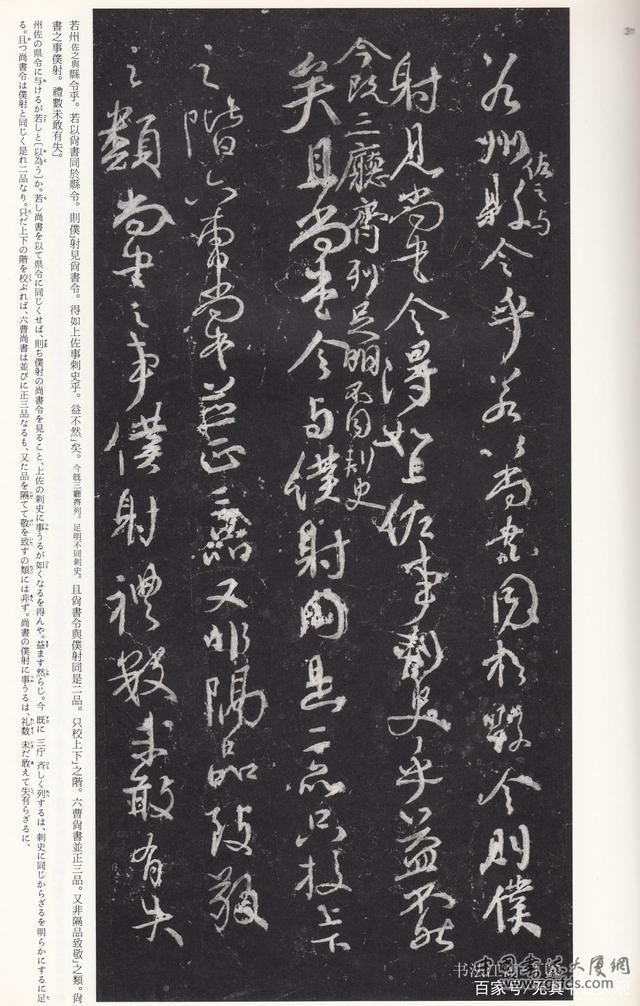 若州佐之与縣令乎若以尚書同於縣令則僕
射見尚書令得如上佐事刺史乎益不然
矣今既三廳齊列足明不同刺史且尚書令与僕射同是二品只校上下
之階六曹尚書並正三品又非隔品致敬
之類尚書之事僕射禮數未敢有失
若州佐之與縣令乎。若以尙書同於縣令。則僕」射見尙書令。得如上佐事刺史乎。益不然」矣。今既三廳齊列。足明不同刺史。且尙書令與僕射同是二品。只校上下」之階。六曹尙書並正三品。又非隔品致敬」之類。尙
書之事僕射。禮數未敢有失」。
州佐の県令に与けるが若しと〔以為う〕か。若し尚書を以て県令に同じくせば、則ち僕射の尚書令を見ること、上佐の刺史に事うるが如くなるを得んや。益ます然らじ。今既に三庁斉しく列するは、刺史に同じからざるを明らかにするに足
る。且つ尚書令は僕射と同じく是れ二品なり。只だ上下の階を校ぶれば、六曹尚書は並びに正三品なるも、又た品を隔てて敬を致すの類には非ず。尚書の僕射に事うるは礼数未だ敢えて失有らざるに、